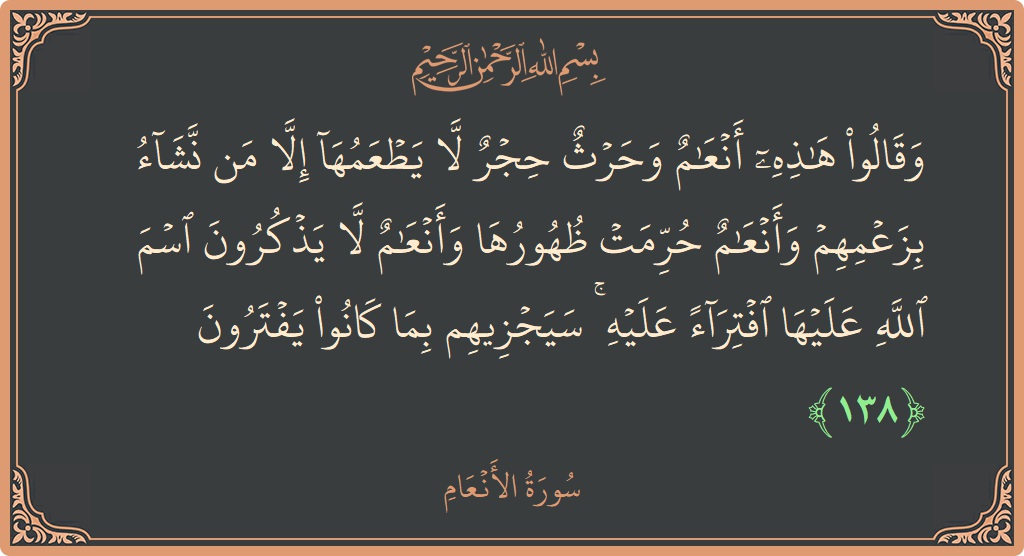 بِسْمِ اللَّهِ الرَّحْمَٰنِ الرَّحِيمِ
وَقَالُوا۟ هَـٰذِهِۦٓ أَنْعَـٰمٌ وَحَرْثٌ حِجْرٌ لَّا يَطْعَمُهَآ إِلَّا مَن نَّشَآءُ
بِزَعْمِهِمْ وَأَنْعَـٰمٌ حُرِّمَتْ ظُهُورُهَا وَأَنْعَـٰمٌ لَّا يَذْكُرُونَ ٱسْمَ
ٱللَّهِ عَلَيْهَا ٱفْتِرَآءً عَلَيْهِ ۚ سَيَجْزِيهِم بِمَا كَانُوا۟ يَفْتَرُونَ
﴿١٣٨﴾
سُورَةُ الأَنْعَامِ